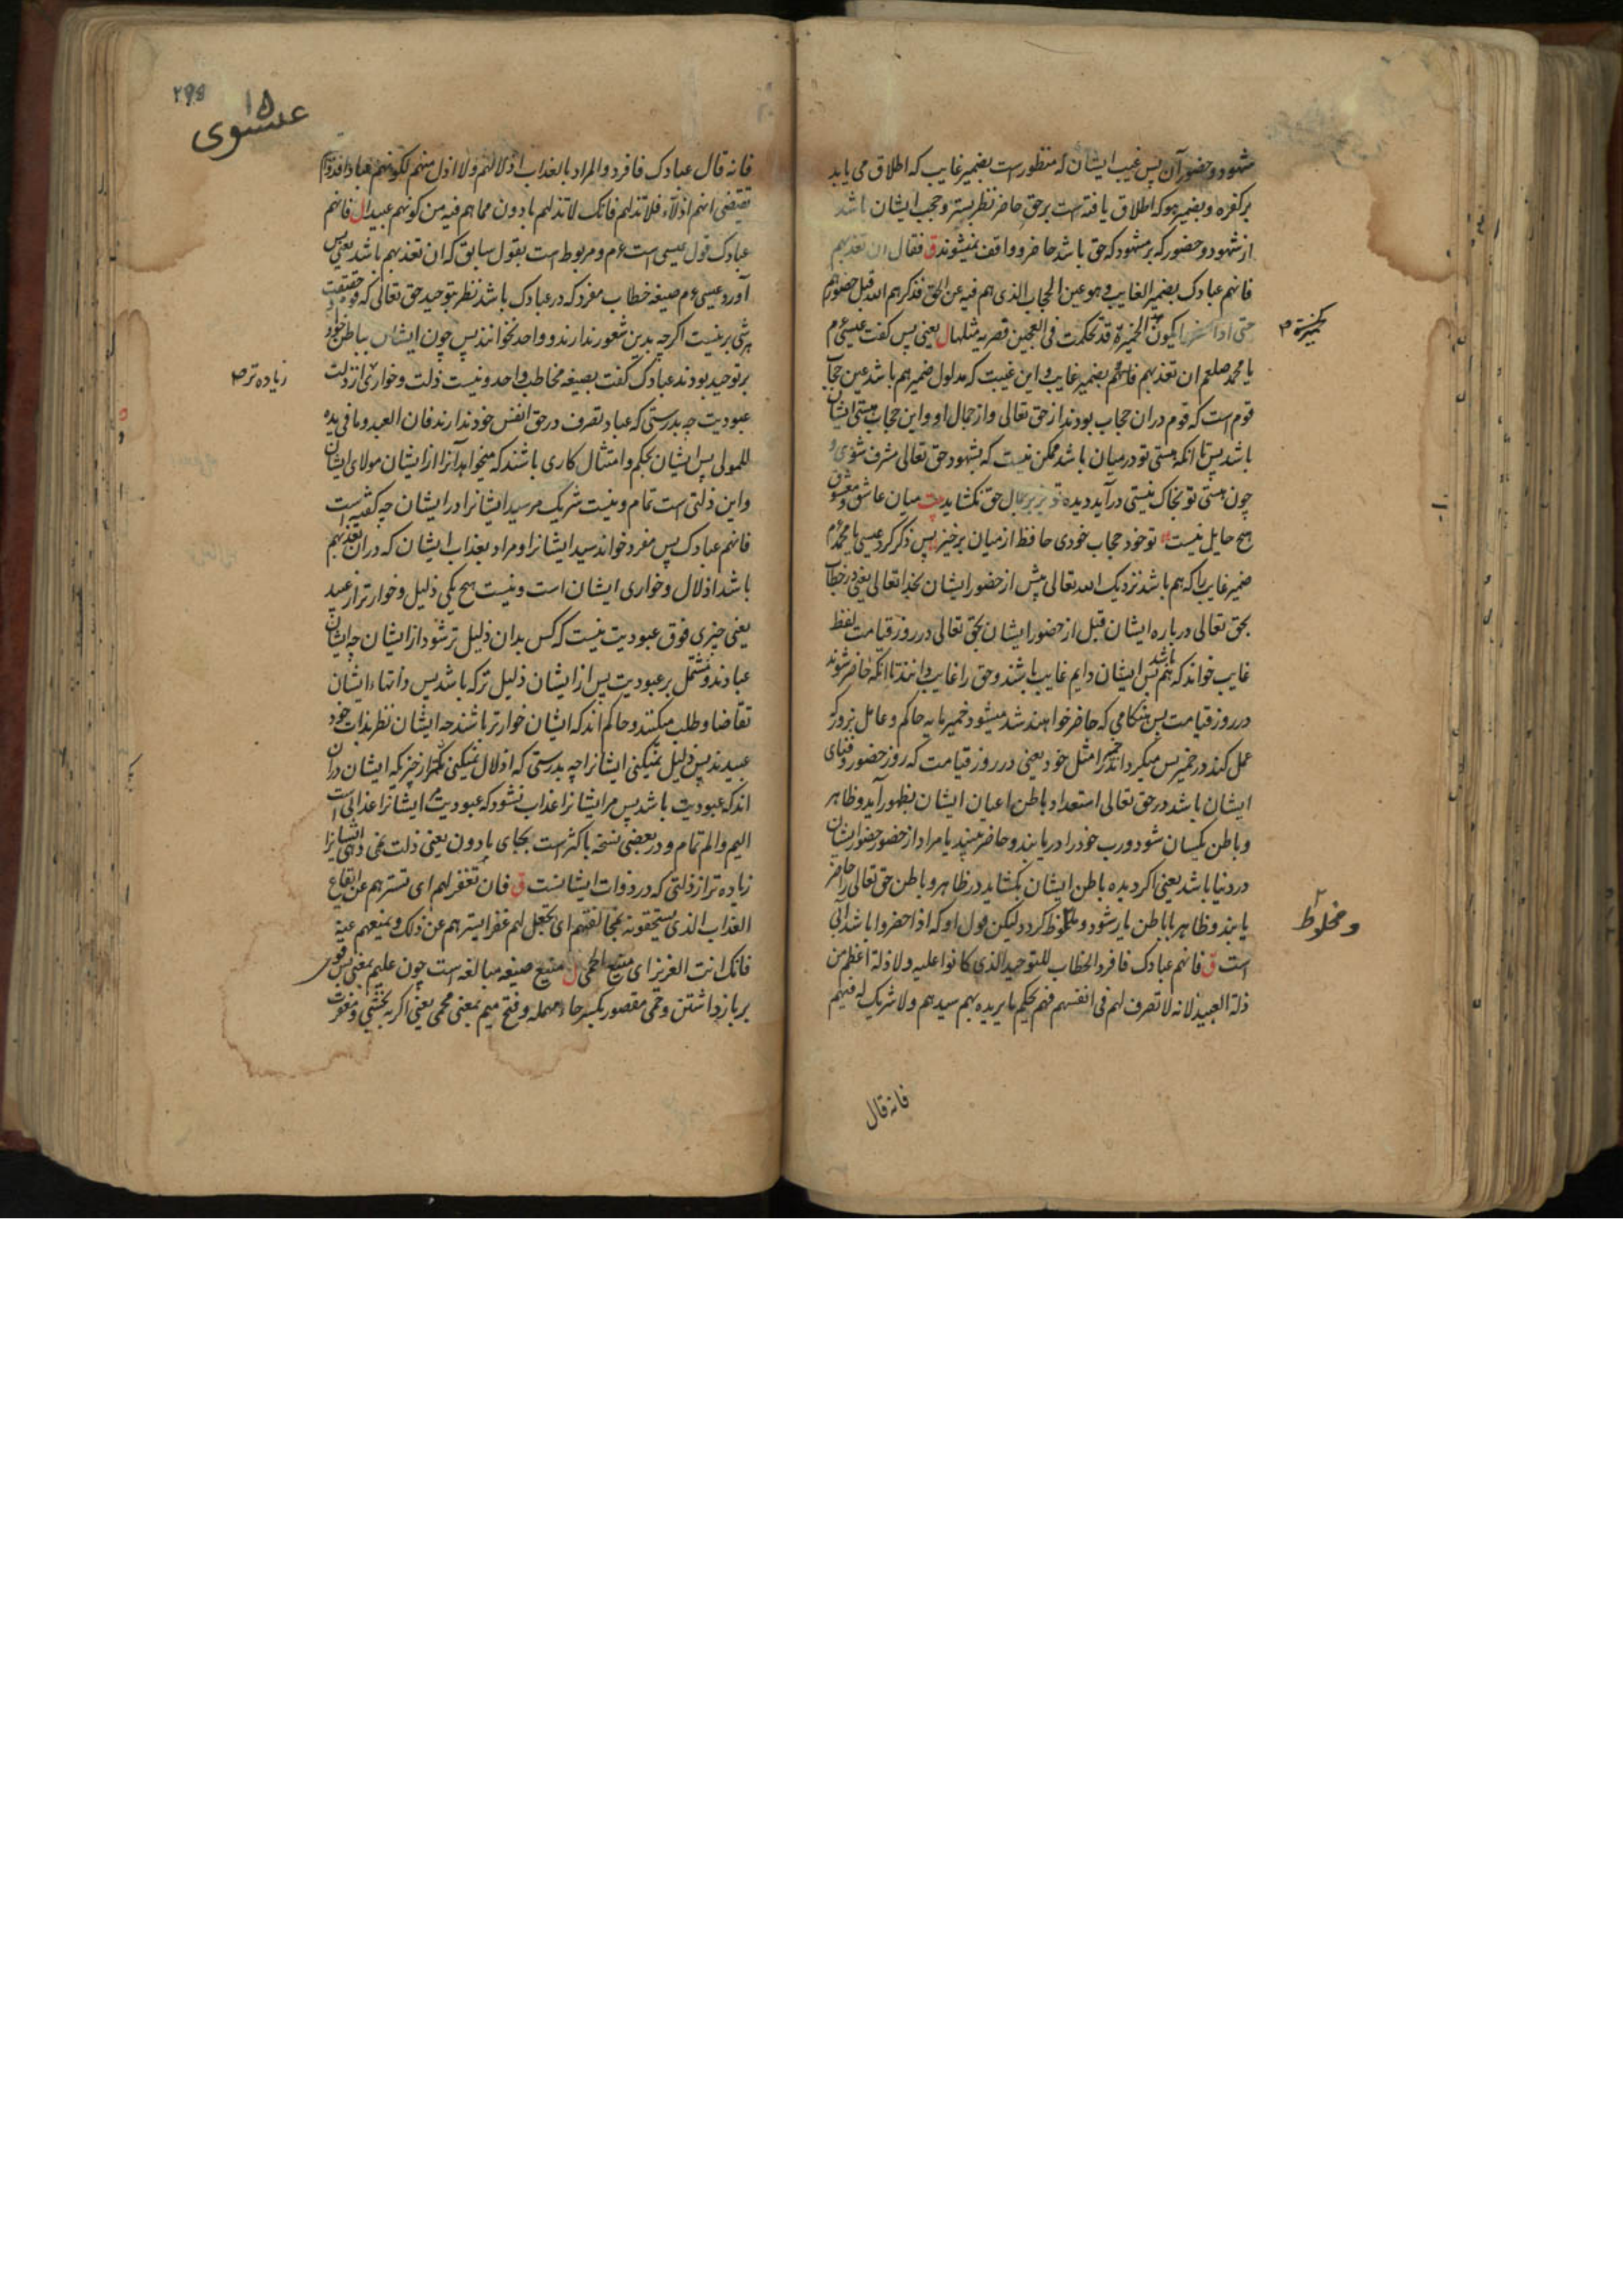 مشهود و حضور آن پس غیب ایشان که منظور است بضمیر غایب که اطلاق می یابد
بر کفره و بضمیر هو که اطلاق یافته است بر حق حاضر نظر بستر و حجب ایشان باشد
از شهود و حضور که بر مشهود که حق باشد حاضر و واقف نمیشوند ق فقال ان تعذبهم
فانهم عبادک بضمیر الغایب و هو عین الحجاب الذی هم فیه عن الحق فذکرهم الله قبل حضورهم
حتی اذا حضروا یکون الخمیرة قد تحکمت فی العجین فصیرته مثلها ل یعنی پس گفت عیسی ع م
یا محمد صلعم ان تعذبهم فانهم بضمیر غایب و این غیبت که مدلول ضمیر هم باشد عین حجاب
قوم است که قوم در ان حجاب بودند از حق تعالی و از جمال او و این حجاب هستی ایشان
باشد پس تا انکه هستی تو در میان باشد ممکن نیست که بشهود حق تعالی مشرف شوی و
چون هستی تو بخاک نیستی در آید دیده تو بر جمال حق نکشاید بیت میان عاشق و معشوق
هیچ حایل نیست تو خود حجاب خودی حافظ از میان برخیز پس ذکر کرد عیسی یا محمد م
ضمیر غایب را که هم باشد نزدیک الله تعالی پیش از حضور ایشان بخدا تعالی یعنی در خطاب
بحق تعالی در باره ایشان قبل از حضور ایشان بحق تعالی در روز قیامت لفظ
غایب خواند که هم باشد پس ایشان دایم غایب باشند و حق را غایب دانند تا انکه حاضر شوند
در روز قیامت پس هنگامی که حاضر خواهند شد میشود خمیر مایه حاکم و عامل بزور که
عمل کند در خمیر پس میکرداند خمیر را مثل خود یعنی در روز قیامت که روز حضور و فنای
ایشان باشد در حق تعالی استعداد باطن اعیان ایشان بظهور آید و ظاهر
و باطن یکسان شود و رب خود را دریابند و حاضر بینند یا مراد از حضور حضور ایشان
در دنیا باشد یعنی اکر دیده باطن ایشان بکشاید در ظاهر و باطن حق تعالی را حاضر
یابند و ظاهر با باطن یار شود و ملحوظ کردد لیکن قول او که اذا حضروا باشد آبی
است ق فانهم عبادک فافرد الخطاب للتوحید الذی کانوا علیه و لا ذلة اعظم من
ذلة العبید لانه لا تصرف لهم فی انفسهم فهم بحکم ما یریده بهم سیدهم و لا شریک له فیهم
و مخلوط
فانه قال
۲۹۵
۱۵
عیسوی
فانه قال عبادک فافرد و المراد بالعذاب اذلالهم و لا اذل منهم لکونهم عبادا فذواتهم
تقتضی انهم اذلاء فلا تذلهم فانک لا تذلهم بادون مما هم فیه من کونهم عبیدا ل فانهم
عبادک قول عیسی است ع م و مربوط است بقول سابق که ان تعذبهم باشد یعنی پس
آورد عیسی ع م صیغه خطاب مفرد که در عبادک باشد نظر بتوحید حق تعالی که در حقیقت
هر شی بر نیست اکر چه بدین شعور ندارند و واحد نخوانند پس چون ایشان بباطن خود
بر توحید بودند عبادک گفت بصیغه مخاطب واحد و نیست ذلت و خواری از ذلت
زیاده تر صح
عبودیت چه بدرستی که عباد تصرف در حق انفس خود ندارند فان العبد و ما فی یده
للمولی پس ایشان بحکم و امتثال کاری باشند که میخواهد آنرا از ایشان مولای ایشان
و این ذلتی است تمام و نیست شریک مر سید ایشانرا در ایشان چه گفته است
فانهم عبادک پس مفرد خواند سید ایشانرا و مراد بعذاب ایشان که در ان تعذبهم
باشد اذلال و خواری ایشان است و نیست هیچ یکی ذلیل و خوارتر از عبید
یعنی چیزی فوق عبودیت نیست که کس بدان ذلیل تر شود از ایشان چه ایشان
عبادند و مشتمل بر عبودیت پس از ایشان ذلیل تر که باشد پس ذاتهاء ایشان
تقاضا و طلب میکنند و حاکم اند که ایشان خوارتر باشند چه ایشان نظر بذات خود
عبیدند پس ذلیل نمیکنی ایشانرا چه بدرستی که اذلال نمیکنی کمتر از چیزیکه ایشان دران
اند که عبودیت باشد پس مر ایشانرا عذاب نشود که عبودیت ایشانرا عذابی است
الیم و الم تمام و در بعضی نسخه باکثر است بجای بادون یعنی ذلت نمی دهی ایشانرا
زیاده تر از ذلتی که در ذوات ایشانست ق فان تغفر لهم ای تسترهم عن ایقاع
العذاب الذی یستحقونه بمخالفتهم ای تجعل لهم غفرا یسترهم عن ذلک و یمنعهم عنه
فانک انت العزیز ای منیع الحمی ل منیع صیغه مبالغه است چون علیم بمعنی پس قوی
بر بازداشتن و حمی مقصور بکسر حاء مهمله و فتح میم بمعنی محمی یعنی اکر بخشی و مغفرت